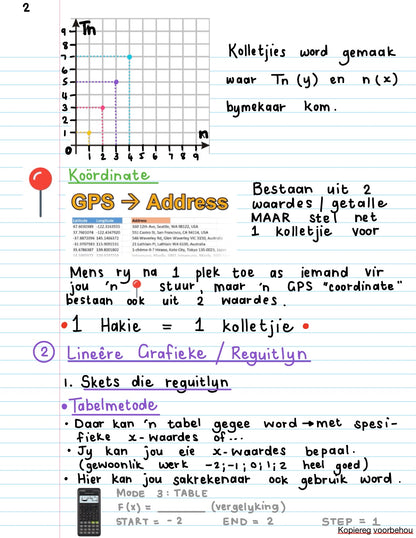 2
Tn
9
8
7
6
5
4
3
2
1
0 1 2 3 4 5 6 7 8 9
n
Kolletjies word gemaak
waar Tn (y) en n (x)
bymekaar kom.
Koördinate
GPS → Address
Latitude Longitude Address
Bestaan uit 2
waardes / getalle
MAAR stel net
1 kolletjie voor
Mens ry na 1 plek toe as iemand vir
jou 'n stuur, maar 'n GPS "coordinate"
bestaan ook uit 2 waardes.
• 1 Hakie = 1 kolletjie •
2 Lineêre Grafieke / Reguitlyn
1. Skets die reguitlyn
• Tabelmetode
• Daar kan 'n tabel gegee word → met spesi-
fieke x-waardes of...
• Jy kan jou eie x-waardes bepaal.
(gewoonlik werk -2;-1;0;1;2 heel goed)
• Hier kan jou sakrekenaar ook gebruik word.
MODE 3: TABLE
F(x) = ______ (vergelyking)
START = -2 END = 2 STEP = 1
Kopiereg voorbehou